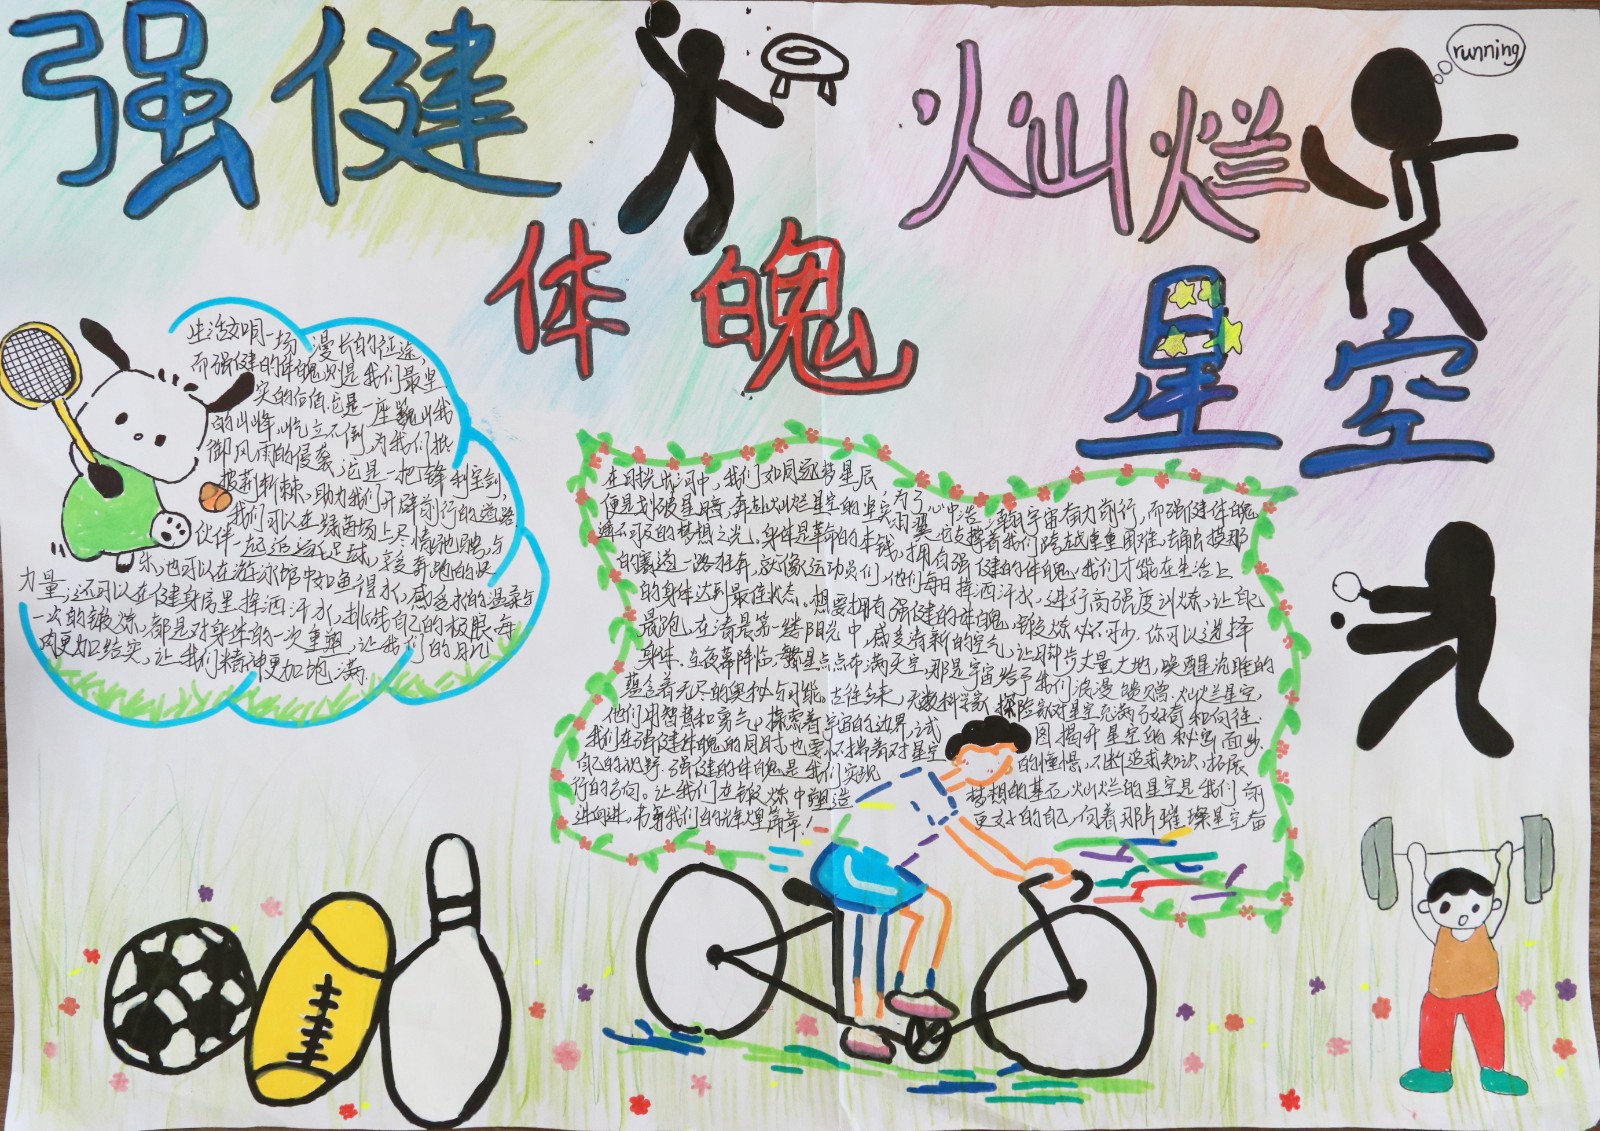 强健
体魄
灿烂
星空
running
生活如同一场漫长的征途,
而强健的体魄则是我们最坚
实的价值.它是一座巍峨
的山峰,屹立不倒,为我们抵
御风雨的侵袭.它是一把锋利宝剑,
披荆斩棘.助力我们开辟前行的道路.
我们可以在绿茵场上尽情驰骋,与
伙伴一起追逐足球,享受奔跑的快
乐,也可以在游泳馆中如鱼得水,感受水的温柔与
力量;还可以在健身房里挥洒汗水,挑战自己的极限.每
一次的锻炼,都是对身体的一次重塑,让我们的
肉更加结实,让我们精神更加饱满.
在时光长河中,我们如同逐梦星辰
便是划破星暗,奔赴灿烂星空的坚实羽翼.它支撑着我们跨越重重困难,去触摸那
遥不可及的梦想之光.身体是革命的本钱,拥有强健的体魄,我们才能在生活上
为了心中浩瀚宇宙奋力前行,而强健体魄
的赛道一路狂奔,就像运动员们,他们每日挥洒汗水,进行高强度训炼,让自己
的身体达到最佳状态.想要拥有强健的体魄,锻炼必不可少.你可以选择
晨跑.在清晨第一缕阳光中,感受清新的空气,让脚步丈量大地,唤醒沉睡的
身体.在夜幕降临,繁星点点布满天空,那是宇宙给予我们浪漫馈赠.灿烂星空,
蕴含着无尽的奥秘与可能.古往今来,无数科学家,探险家对星空充满了好奇和向往.
他们用智慧和勇气,探索着宇宙的边界,试图揭开星空的秘密面纱.
我们在强健体魄的同时,也要怀揣着对星空的憧憬,不断追求知识,拓展
自己的视野.强健的体魄是我们实现梦想的基石,灿烂的星空是我们前
行的方向。让我们在锻炼中塑造更好的自己,向着那片璀璨星空奋
进,书写我们的辉煌篇章!